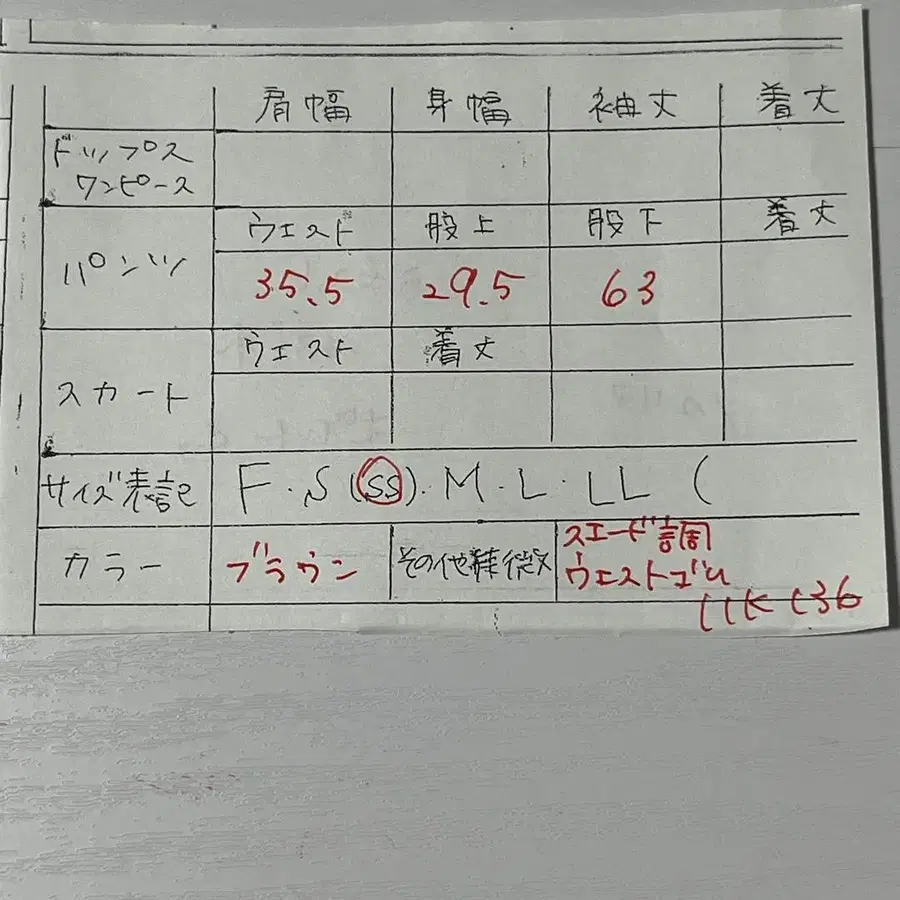 肩幅 身幅 袖丈 着丈
トップス
ワンピース
ウエスト 股上 股下 着丈
パンツ
35.5 29.5 63
ウエスト 着丈
スカート
サイズ表記 F・S(SS)・M・L・LL (
カラー ブラウン その他特徴 スエード調
ウエストゴム